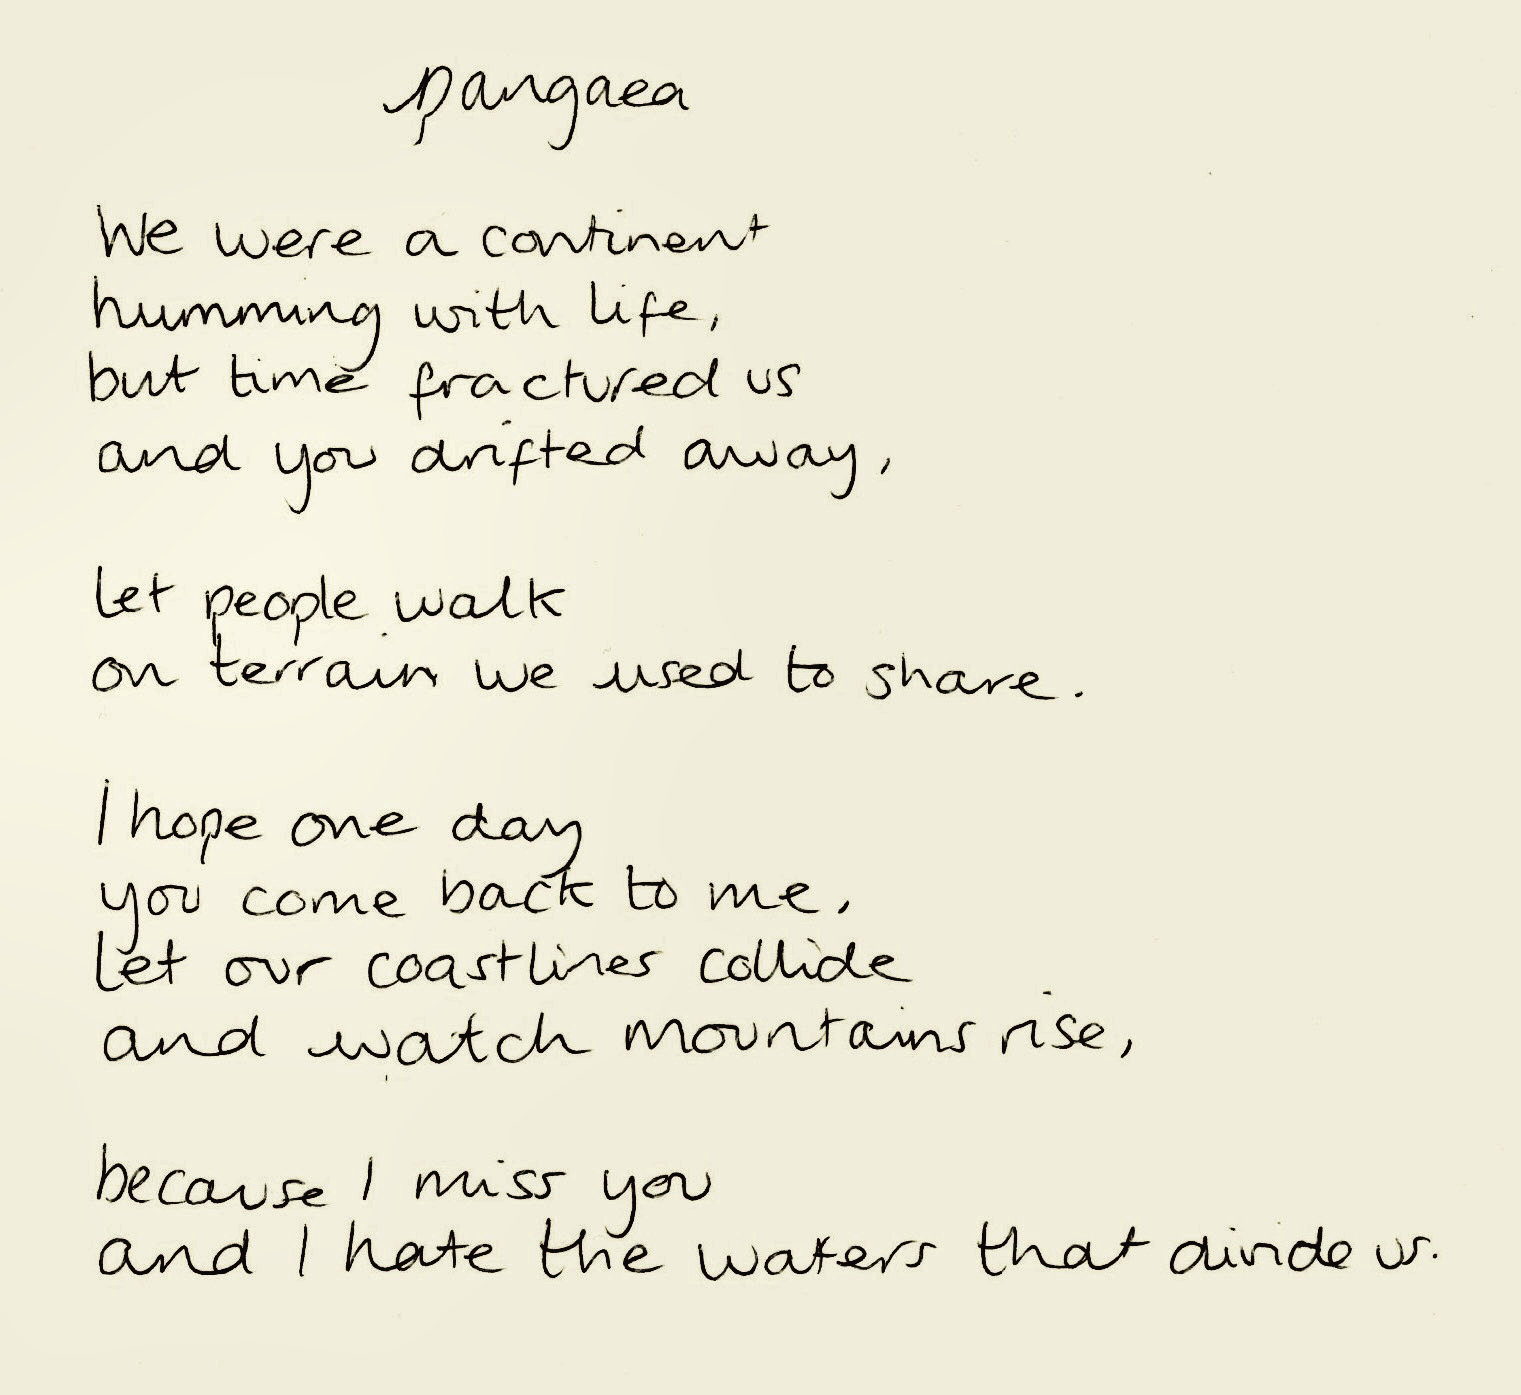 pangaea
We were a continent
humming with life,
but time fractured us
and you drifted away,
let people walk
on terrain we used to share.
I hope one day
you come back to me,
let our coastlines collide
and watch mountains rise,
because I miss you
and I hate the waters that divide us.